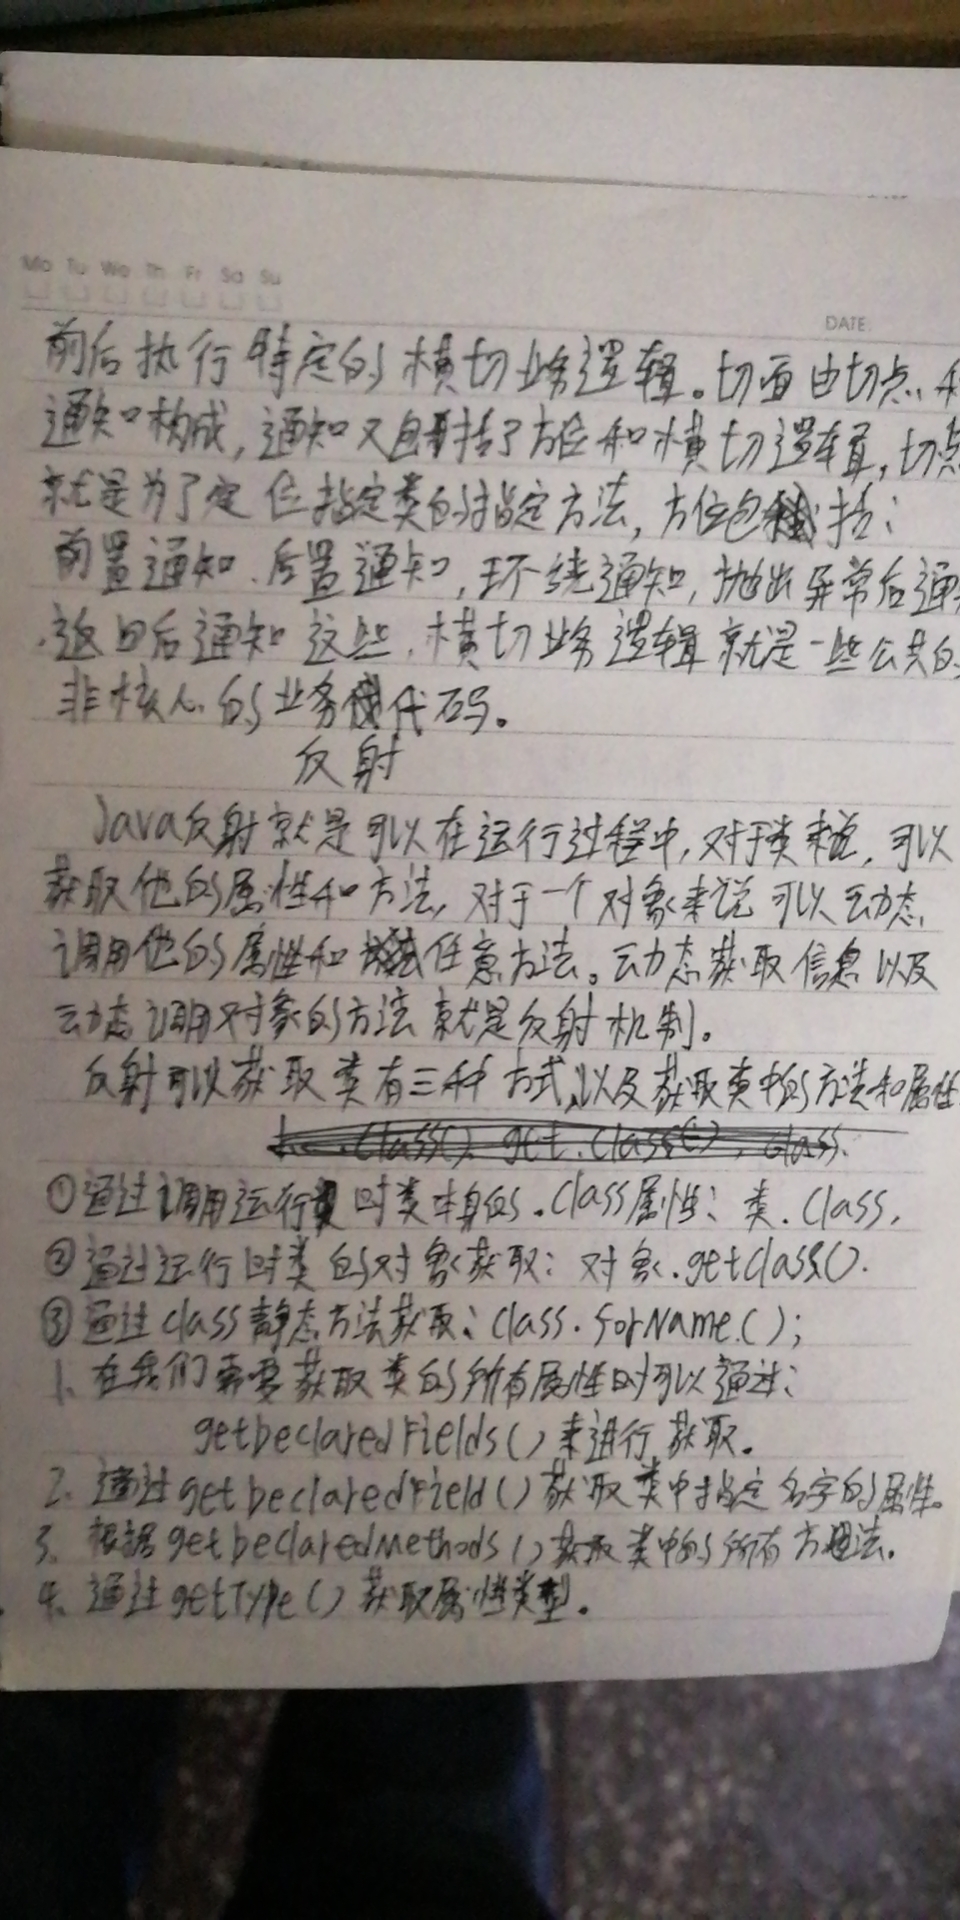 Mo Tu We Th Fr Sa Su
DATE:
前后执行特定的横切业务逻辑。切面由切点、和
通知构成，通知又包括了方位和横切逻辑，切点
就是为了定位指定类的指定方法，方位包括：
前置通知、后置通知，环绕通知，抛出异常后通
返回后通知这些，横切业务逻辑就是一些公共的
非核心的业务代码。
反射
Java反射就是可以在运行过程中，对于类来说，可以
获取他的属性和方法，对于一个对象来说可以动态
调用他的属性和任意方法。动态获取信息以及
动态调用对象的方法就是反射机制。
反射可以获取类有三种方式，以及获取类中的方法和属性
class() get.class(), class.
①通过调用运行时类本身的.class属性：类.class,
②通过运行时类的对象获取：对象.getclass().
③通过class静态方法获取：class.forName.();
1、在我们需要获取类的所有属性时可以通过：
getDeclaredFields()来进行获取。
2、通过getDeclaredField()获取类中指定名字的属性。
3、根据getDeclaredMethods()获取类中的所有方法。
4、通过getType()获取属性类型。